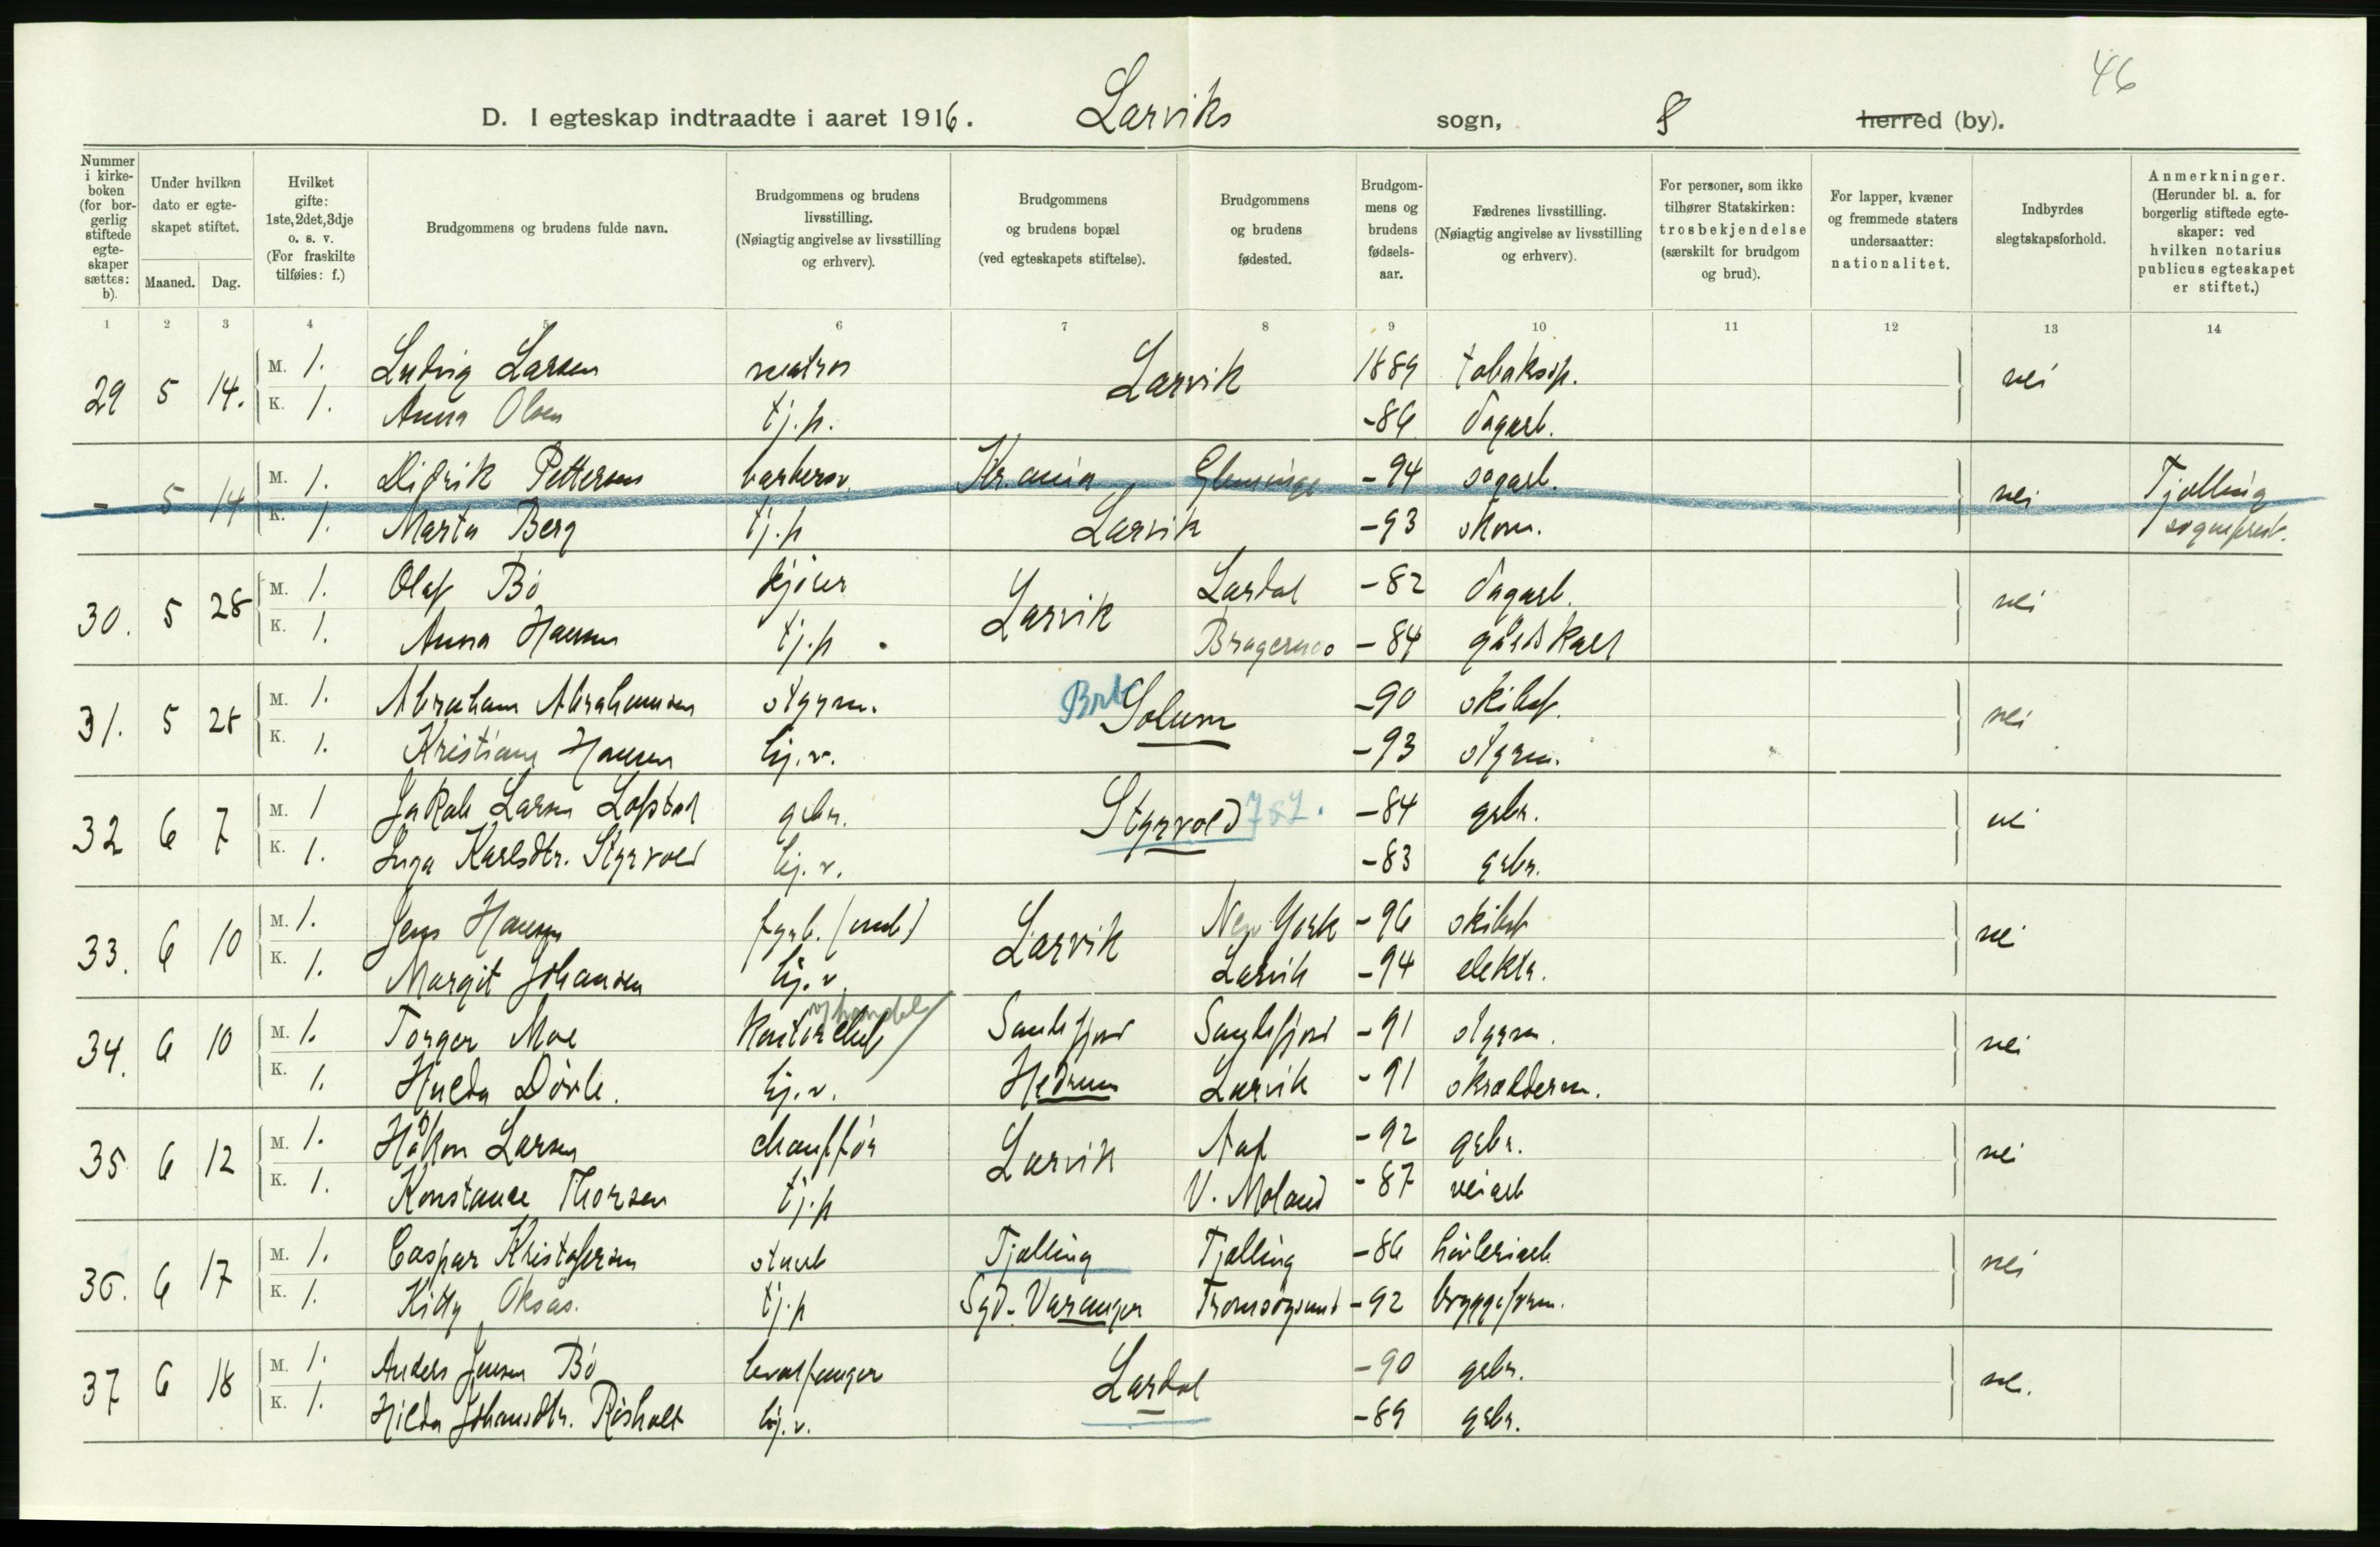 46
D. I egteskap indtraadte i aaret 1916. Larviks sogn, herred (by).
Nummer i kirke-boken (for bor-gerlig stiftede egte-skaper sættes: b).
Under hvilken dato er egte-skapet stiftet.
Maaned. Dag.
Hvilket gifte: 1ste, 2det, 3dje o. s. v. (For fraskilte tilføies: f.)
Brudgommens og brudens fulde navn.
Brudgommens og brudens livsstilling. (Nøiagtig angivelse av livsstilling og erhverv).
Brudgommens og brudens bopæl (ved egteskapets stiftelse).
Brudgommens og brudens fødested.
Brudgom-mens og brudens fødsels-aar.
Fædrenes livsstilling. (Nøiagtig angivelse av livsstilling og erhverv).
For personer, som ikke tilhører Statskirken: trosbekjendelse (særskilt for brudgom og brud).
For lapper, kvæner og fremmede staters undersaatter: nationalitet.
Indbyrdes slegtskapsforhold.
Anmerkninger. (Herunder bl. a. for borgerlig stiftede egte-skaper: ved hvilken notarius publicus egteskapet er stiftet.)
1 2 3 4 5 6 7 8 9 10 11 12 13 14
29 5 14. M. 1. Ludvig Larsen matros Larvik 1889 nei
K. 1. Anna Olsen tj.p. -86 dagarb.
- 5 14 M. 1. Didrik Pettersen barbersv. Kr.ania Glemminge -94 sagarb. nei Tjølling
K. 1. Marta Berg tj.p Larvik -93 skom. sogneprest.
30. 5 28 M. 1. Olaf Bö kjører Larvik Lardal -82 dagarb. nei
K. 1. Anna Hansen tj.p Bragernes -84 gårdskarl
31. 5 28 M. 1. Abraham Abrahamsen styrm. Brb Solum -90 skibsf. nei
K. 1. Kristiane Hansen hj.v. -93 styrm.
32 6 7 M. 1 Jakob Larsen gbr. Styrvold -84 grbr. nei
K. 1. Inga Karlsdtr. Styrvold hj.v. -83 grbr.
33. 6 10 M. 1. Jens Hansen fyrb. Larvik New York -96 nei
K. 1. Margit Johansen hj.v. Larvik -94 elektr.
34. 6 10 M. 1. Torger Moe Kontorchef Sandefjord Sandefjord -91 styrm. nei
K. 1. Hulda Dövle. hj.v. Hedrum Larvik -91 skrædderm.
35 6 12 M. 1. Håkon Larsen chauffør Larvik -92 grbr. nei
K. 1. Konstance Thorsen tj.p V. Moland -87 veiarb
36. 6 17 M. 1. Caspar Kristofersen Tjølling Tjølling -86 høvleriarb. nei
K. 1. Kitty Oksås. tj.p Syd-Varanger Tromsøysund -92 bryggeform.
37 6 18 M. 1. Anders Jensen Bö hvalfanger Lardal -90 grbr. nei.
K. 1. Hilda Johansdtr. Rishalt hj.v. -89 grbr.